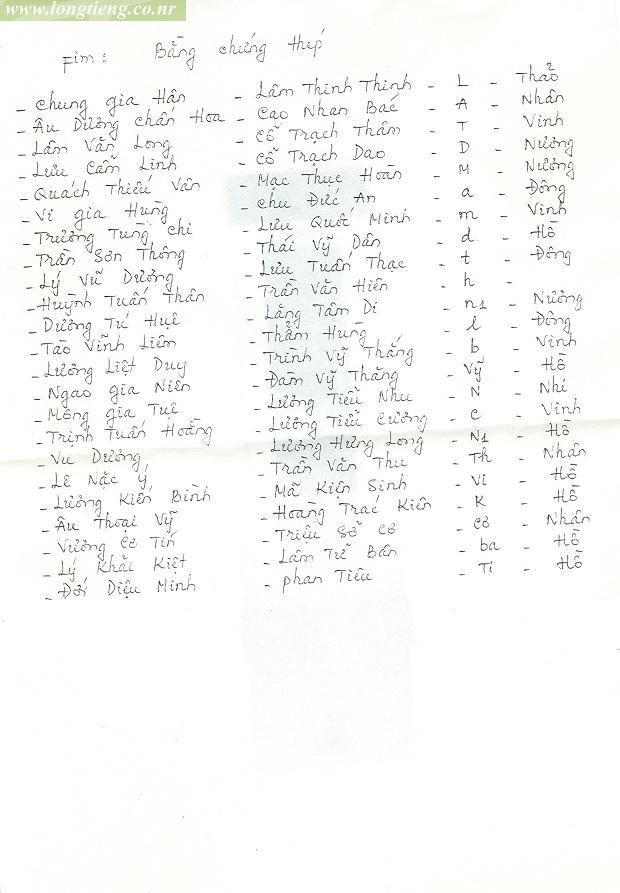 www.longtieng.co.nr
Fim: Bằng chứng thép
- Chung gia Hân - Lâm Thinh Thinh - L - Thảo
- Âu Dương Chấn Hoa - Cao Nhan Bác - A - Nhân
- Lâm Văn Long - Cổ Trạch Thâm - T - Vinh
- Lưu Cẩm Linh - Cổ Trạch Dao - D - Nương
- Quách Thiếu Vân - Mạc Thục Hoàn - M - Nương
- Vi gia Hùng - Chu Đức An - a - Đông
- Trương Tùng Chi - Lưu Quốc Minh - m - Vinh
- Trần Sơn Thông - Thái Vỹ Dân - d - Hồ
- Lý Vũ Dương - Lưu Tuấn Thạc - t - Đông
- Huỳnh Tuấn Thân - Trần Văn Hiển - h -
- Dương Tú Huệ - Lăng Tâm Di - n1 - Nương
- Tào Vĩnh Liêm - Thẩm Hùng - l - Đông
- Lương Liệt Duy - Trình Vỹ Thắng - b - Vinh
- Ngao gia Niên - Đàm Vỹ Thắng - Vỹ - Hồ
- Mông gia Tuệ - Lương Tiểu Nhu - N - Nhi
- Trịnh Tuấn Hoằng - Lương Tiểu Cương - C - Vinh
- Vu Dương - Lương Hưng Long - N1 - Hồ
- Lê Nặc Ý - Trần Văn Thu - Th - Nhân
- Lương Kiến Bình - Mã Kiện Sinh - Vi - Hồ
- Âu Thoại Vỹ - Hoàng Trác Kiên - K - Hồ
- Vương Cơ Tín - Triệu Sở Cơ - Cơ - Nhân
- Lý Khải Kiệt - Lâm Tử Bân - ba - Hồ
- Đới Diệu Minh - phan Tiêu - Ti - Hồ